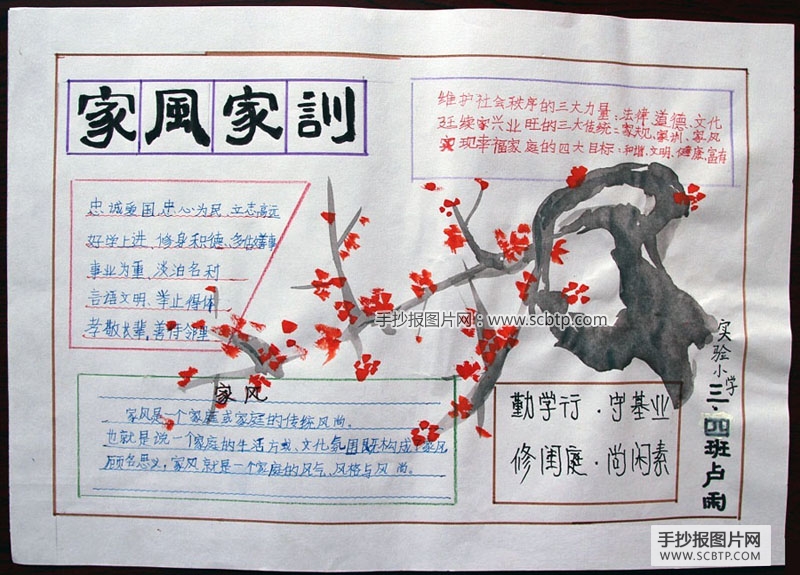 家風家訓
维护社会秩序的三大力量：法律、道德、文化
延续家兴业旺的三大传统：家规、家训、家风
实现幸福家庭的四大目标：和谐、文明、健康、富有
忠诚爱国 忠心为民 立志高远
好学上进、修身积德、多做善事
事业为重 淡泊名利
言语文明、举止得体
孝敬长辈,善待邻里
手抄报图片网：www.scbtp.com
家风
家风是一个家庭或家庭的传统风尚。
也就是说一个家庭的生活方式、文化氛围既构成了家风
顾名思义,家风就是一个家庭的风气,风格与风尚。
勤学行·守基业
修闺庭·尚闲素
实验小学三·四班卢雨
手抄报图片网
WWW.SCBTP.COM